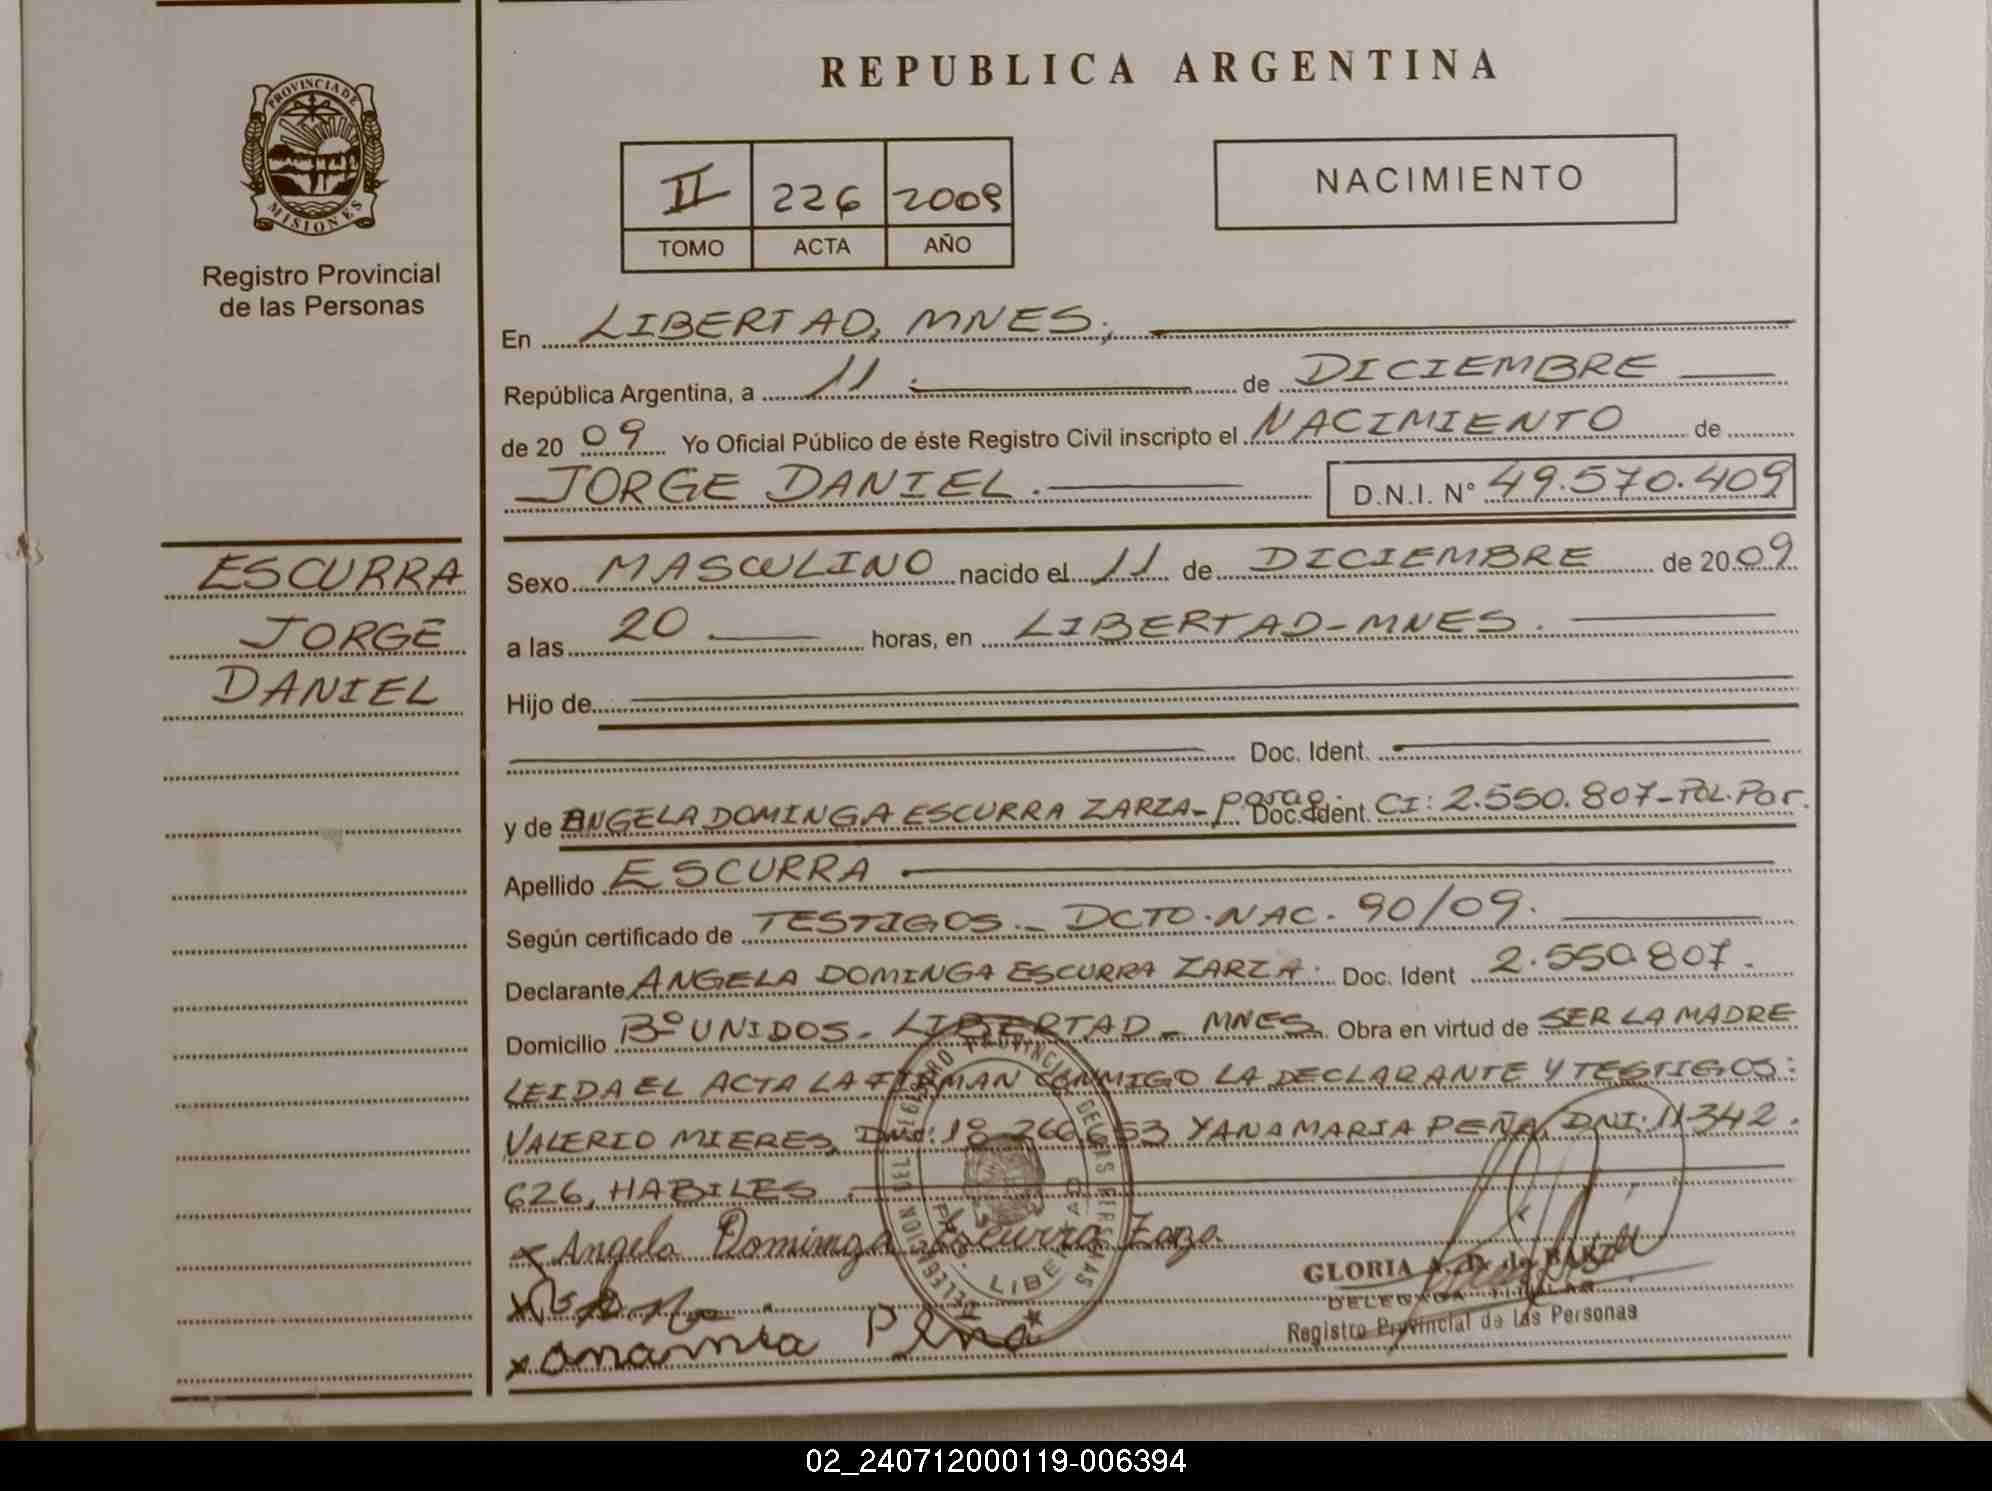 PROVINCIA DE
MISIONES
Registro Provincial
de las Personas
ESCURRA
JORGE
DANIEL
REPUBLICA ARGENTINA
II 226 2009
TOMO ACTA AÑO
NACIMIENTO
En LIBERTAD, MNES;
República Argentina, a 11.- de DICIEMBRE
de 2009 Yo Oficial Público de éste Registro Civil inscripto el NACIMIENTO de
JORGE DANIEL. D.N.I. N° 49.570.409
Sexo MASCULINO nacido el 11 de DICIEMBRE de 2009
a las 20 horas, en LIBERTAD-MNES.
Hijo de
Doc. Ident.
y de ANGELA DOMINGA ESCURRA ZARZA- parag. Doc. Ident. CI: 2.550.807-POL.Par.
Apellido ESCURRA
Según certificado de TESTIGOS.- DCTO.NAC. 90/09.
Declarante ANGELA DOMINGA ESCURRA ZARZA. Doc. Ident 2.550.807.
Domicilio B° UNIDOS- LIBERTAD- MNES. Obra en virtud de SER LA MADRE
LEIDA EL ACTA LA FIRMAN CONMIGO LA DECLARANTE Y TESTIGOS:
VALERIO MIERES, 18.260.653 Y ANA MARIA PEÑA, DNI: 11.342.
626, HABILES.
x Angela Dominga Escurra Zarza
x
x anamria Peña
GLORIA
DELEGADA TITULAR
Registro Provincial de las Personas
LIBERTAD
02_240712000119-006394